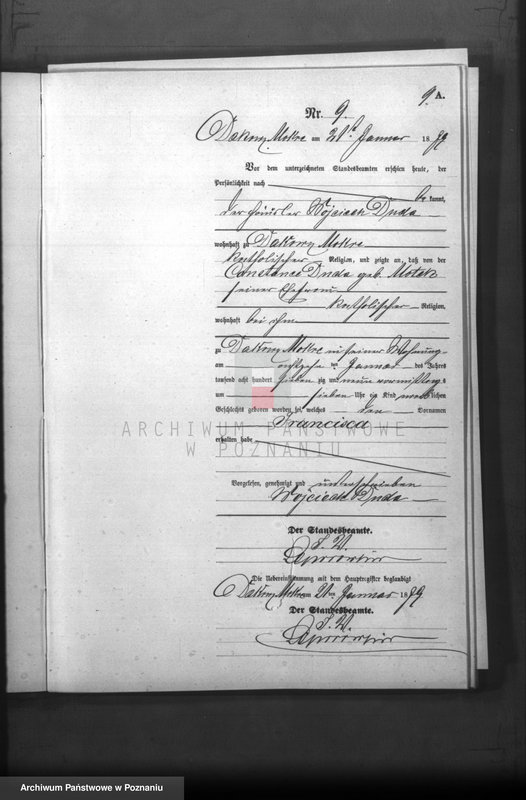 9. A.
Nr. 9.
Dakowy Mokre am 21ten Januar 1879
Vor dem unterzeichneten Standesbeamten erschien heute, der
Persönlichkeit nach
be kannt,
der Häusler Wojciech Duda
wohnhaft zu Dakowy Mokre
katholischer Religion, und zeigte an, daß von der
Constancia Duda geb. Motek
seiner Ehefrau
katholischer Religion,
wohnhaft bei ihm
zu Dakowy Mokre in seiner Wohnung
am ten Januar des Jahres
tausend acht hundert sieben zig und neun Vormittags
um sieben Uhr ein Kind weiblichen
Geschlechts geboren worden sei, welches den Vornamen
Francisca
erhalten habe
ARCHIWUM PAŃSTWOWE
W POZNANIU
Vorgelesen, genehmigt und unterschrieben
Wojciech Duda
Der Standesbeamte.
I. V.
Die Uebereinstimmung mit dem Hauptregister beglaubigt
Dakowy Mokre am 21ten Januar 1879
Der Standesbeamte.
I. V.
Archiwum Państwowe w Poznaniu